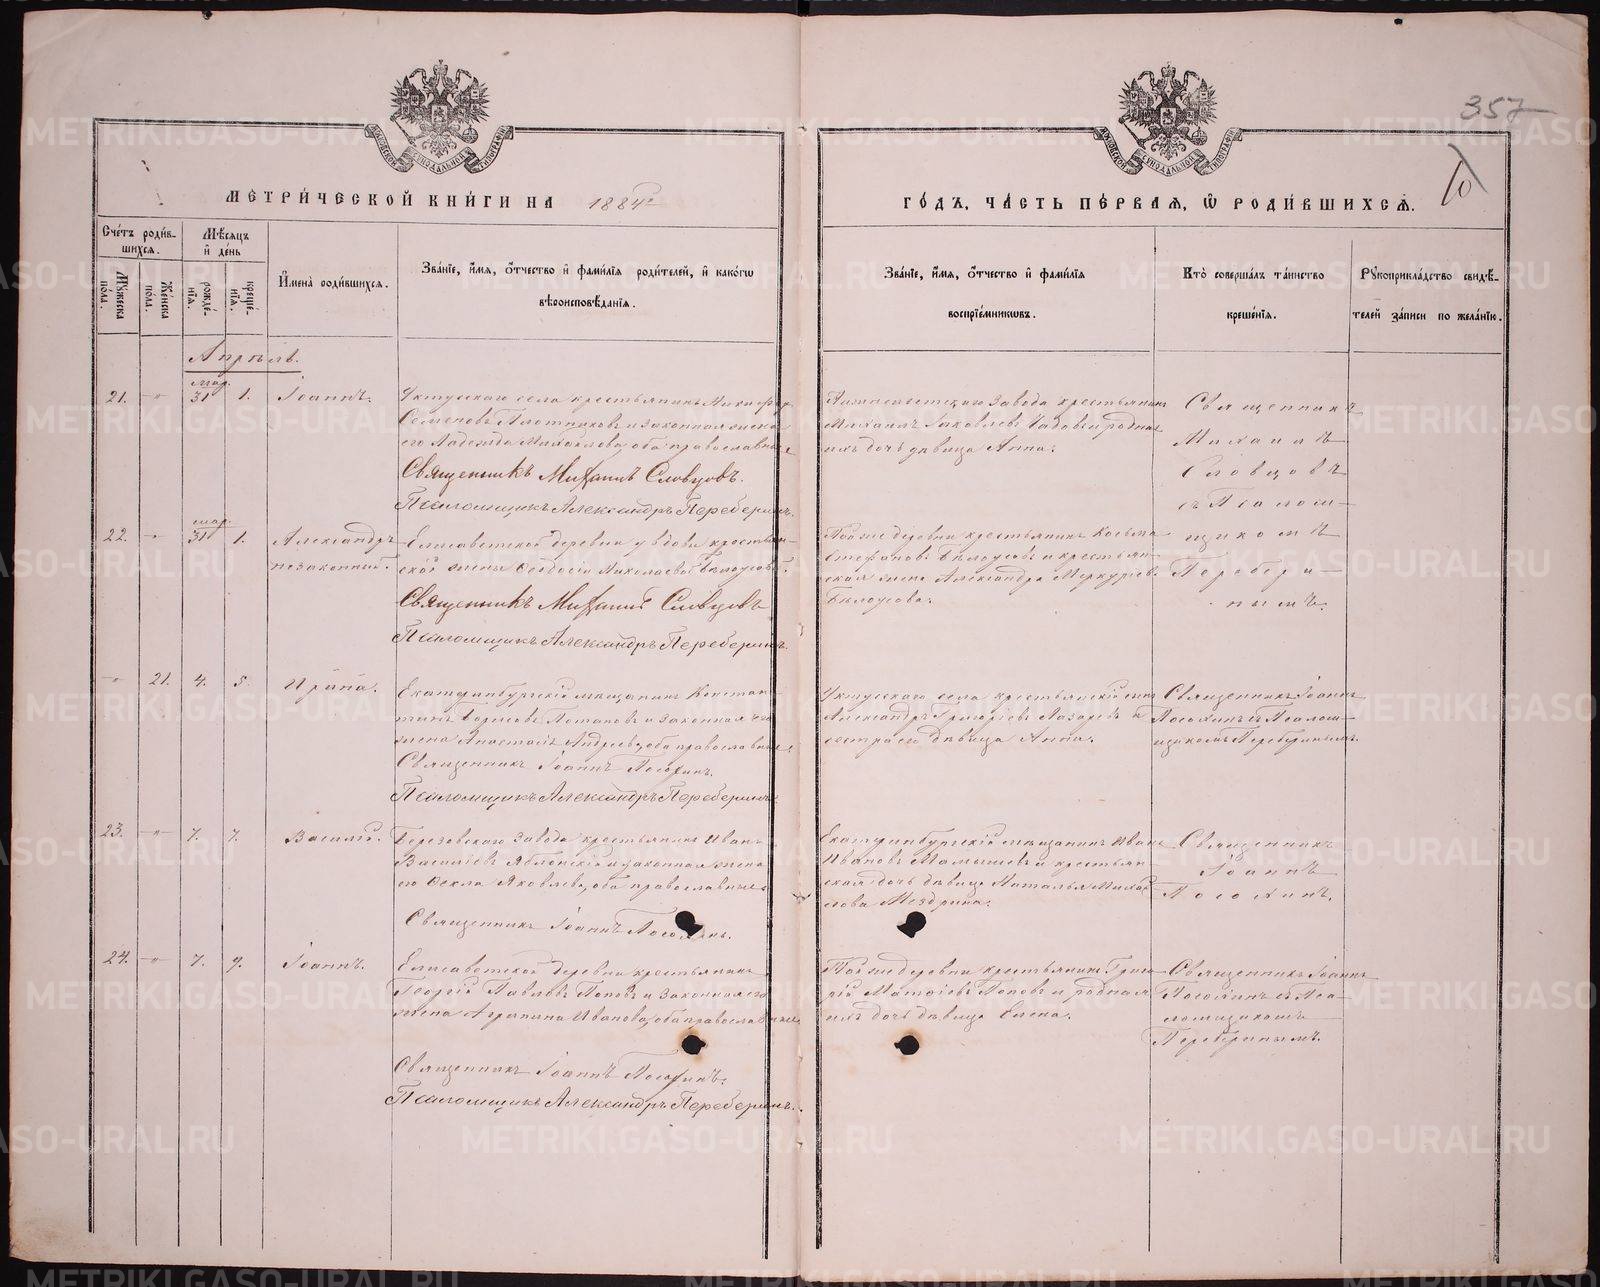 357
10
МОСКОВСКОЙ СѴНОДАЛЬНОЙ ТИПОГРАФІИ
МОСКОВСКОЙ СѴНОДАЛЬНОЙ ТИПОГРАФІИ
МЕТРИ́ЧЕСКОЙ КНИ́ГИ НА 1884й
ГО́ДЪ, ЧА́СТЬ ПЕ́РВАЯ, Ѡ РОДИ́ВШИХСЯ.
Сче́тъ роди́в-
шихся.
Мꙋ́жеска
пола.
Же́нска
пола.
Мѣ́сяцъ
и҆ де́нь
рожде́-
нїя.
креще́-
нїя.
И҆мена̀ роди́вшихся.
Зва́нїе, и҆́мя, ѻ҆́тчество и҆ фами́лїя роди́телей, и҆ како́гѡ
вѣроисповѣ́данїя.
Зва́нїе, и҆́мя, ѻ҆́тчество и҆ фами́лїя
воспрїе́мникѡвъ.
Кто̀ соверша́лъ та́инство
креще́нїя.
Рꙋкоприкла́дство свидѣ́-
телей за́писи по жела́нїю.
Апрѣль.
мар.
21. -"- 31 1. Іоаннъ.
Уктусскаго села крестьянинъ Никифор
Семеновъ Плотниковъ и законная жена
его Надежда Михайлова, оба православные
Священникъ Михаилъ Словцовъ.
Псаломщикъ Александръ Переберинъ.
крестьянинъ
Михаилъ Яковлевъ и родная
ихъ дочь дѣвица Анна.
Священникъ
Михаилъ
Словцовъ
съ Псалом-
щикомъ
Перебери-
нымъ.
мар.
22. -"- 31 1. Александръ
незаконный.
Елисаветской деревни у вдовы крестьян-
ской жены Ѳеодосіи Николаевой Бѣлоусов.
Священникъ Михаилъ Словцовъ
Псаломщикъ Александръ Переберинъ.
Той же деревни крестьянинъ Косьма
Стефановъ Бѣлоусовъ и крестьян-
ская жена Александра Меркурьев.
Бѣлоусова.
-"- 21. 4. 5. Ирина.
Екатеринбургскій мѣщанинъ Констан-
тинъ Борисовъ Потаповъ и законная его
жена Анастасія Андреева, оба православные
Священникъ Іоаннъ Посохинъ.
Псаломщикъ Александръ Переберинъ.
Уктусскаго села крестьянскій сынъ
Александръ Григорьевъ Лазаревъ и
сестра его дѣвица Анна.
Священникъ Іоаннъ
Посохинъ съ Псалом-
щикомъ Переберинымъ.
23. -"- 7. 7. Василій.
Березовскаго завода крестьянинъ Иванъ
Василіевъ Яблонскій и законная жена
его Ѳекла Яковлева, оба православные
Священникъ Іоаннъ Посохинъ.
Екатеринбургскій мѣщанинъ Иванъ
Ивановъ Мамышевъ и крестьян
ская дочь дѣвица Наталья Михай
лова Мездрина.
Священникъ
Іоаннъ
Посохинъ.
24. -"- 7. 9. Іоаннъ.
Елисаветской деревни крестьянинъ
Георгій Павловъ Поповъ и законная его
жена Агрипина Иванова, оба православные
Священникъ Іоаннъ Посохинъ.
Псаломщикъ Александръ Переберинъ.
Той же деревни крестьянинъ Григо
рій Матѳіевъ Поповъ и родная
ихъ дочь дѣвица Елена.
Священникъ Іоаннъ
Посохинъ съ Пса-
ломщикомъ
Переберинымъ.
METRIKI.GASO-URAL.RU